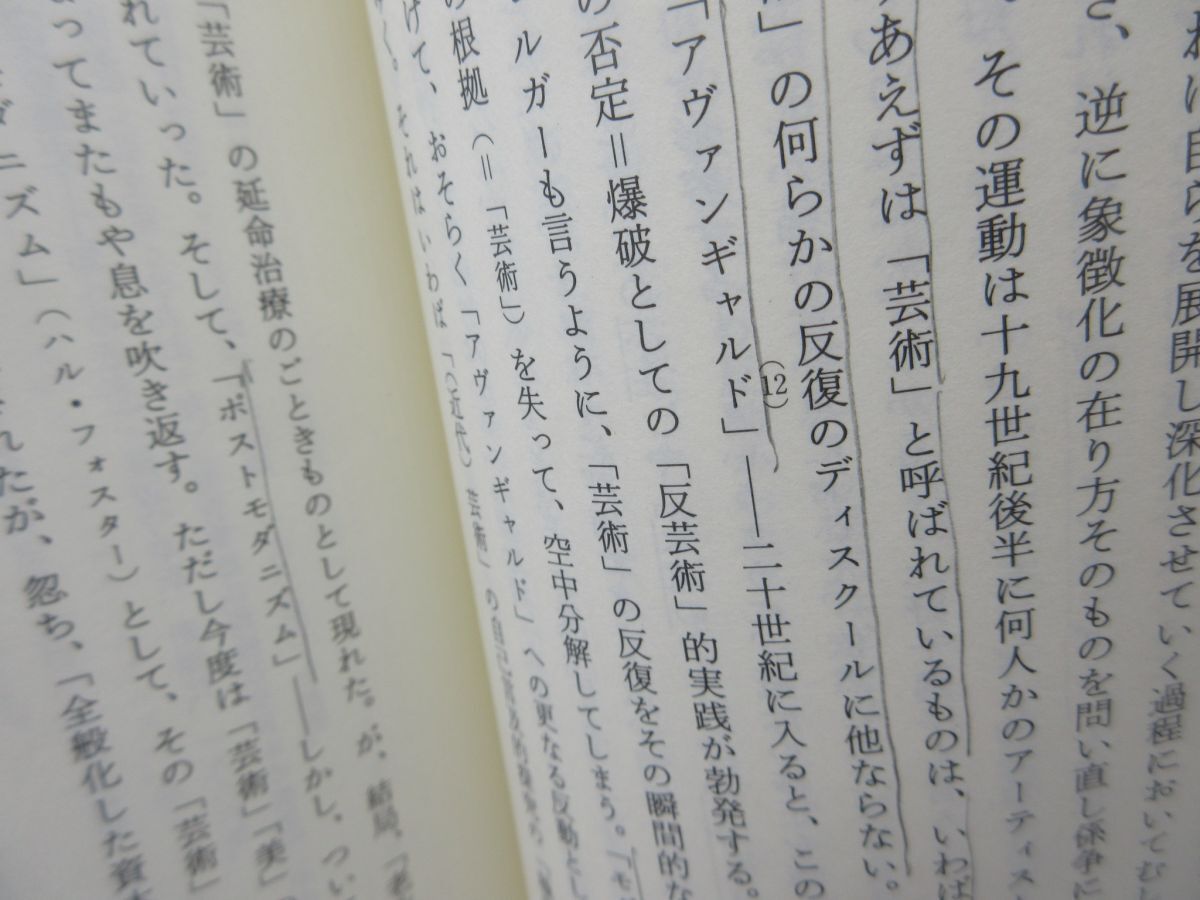 自らを展開し深化させていく過程においてむし
逆に象徴化の在り方そのものを問い直し係争に
その運動は十九世紀後半に何人かのアーティス
あえずは「芸術」と呼ばれているものは、いわば
」の何らかの反復のディスクールに他ならない。
(12)
「アヴァンギャルド」――二十世紀に入ると、この
の否定=爆破としての「反芸術」的実践が勃発する。
ルガーも言うように、「芸術」の反復をその瞬間的な
の根拠(=「芸術」)を失って、空中分解してしまう。「モ
けて、おそらく「アヴァンギャルド」への更なる反動とし
く。それはいわば「(近代)芸術」の
「芸術」の延命治療のごときものとして現れた。が、結局、「老
れていった。そして、「ポストモダニズム」――しかし、つい
ってまたもや息を吹き返す。ただし今度は「芸術」「美」
ダニズム」(ハル・フォスター)として、その「芸術」
れたが、忽ち、「全般化した資本